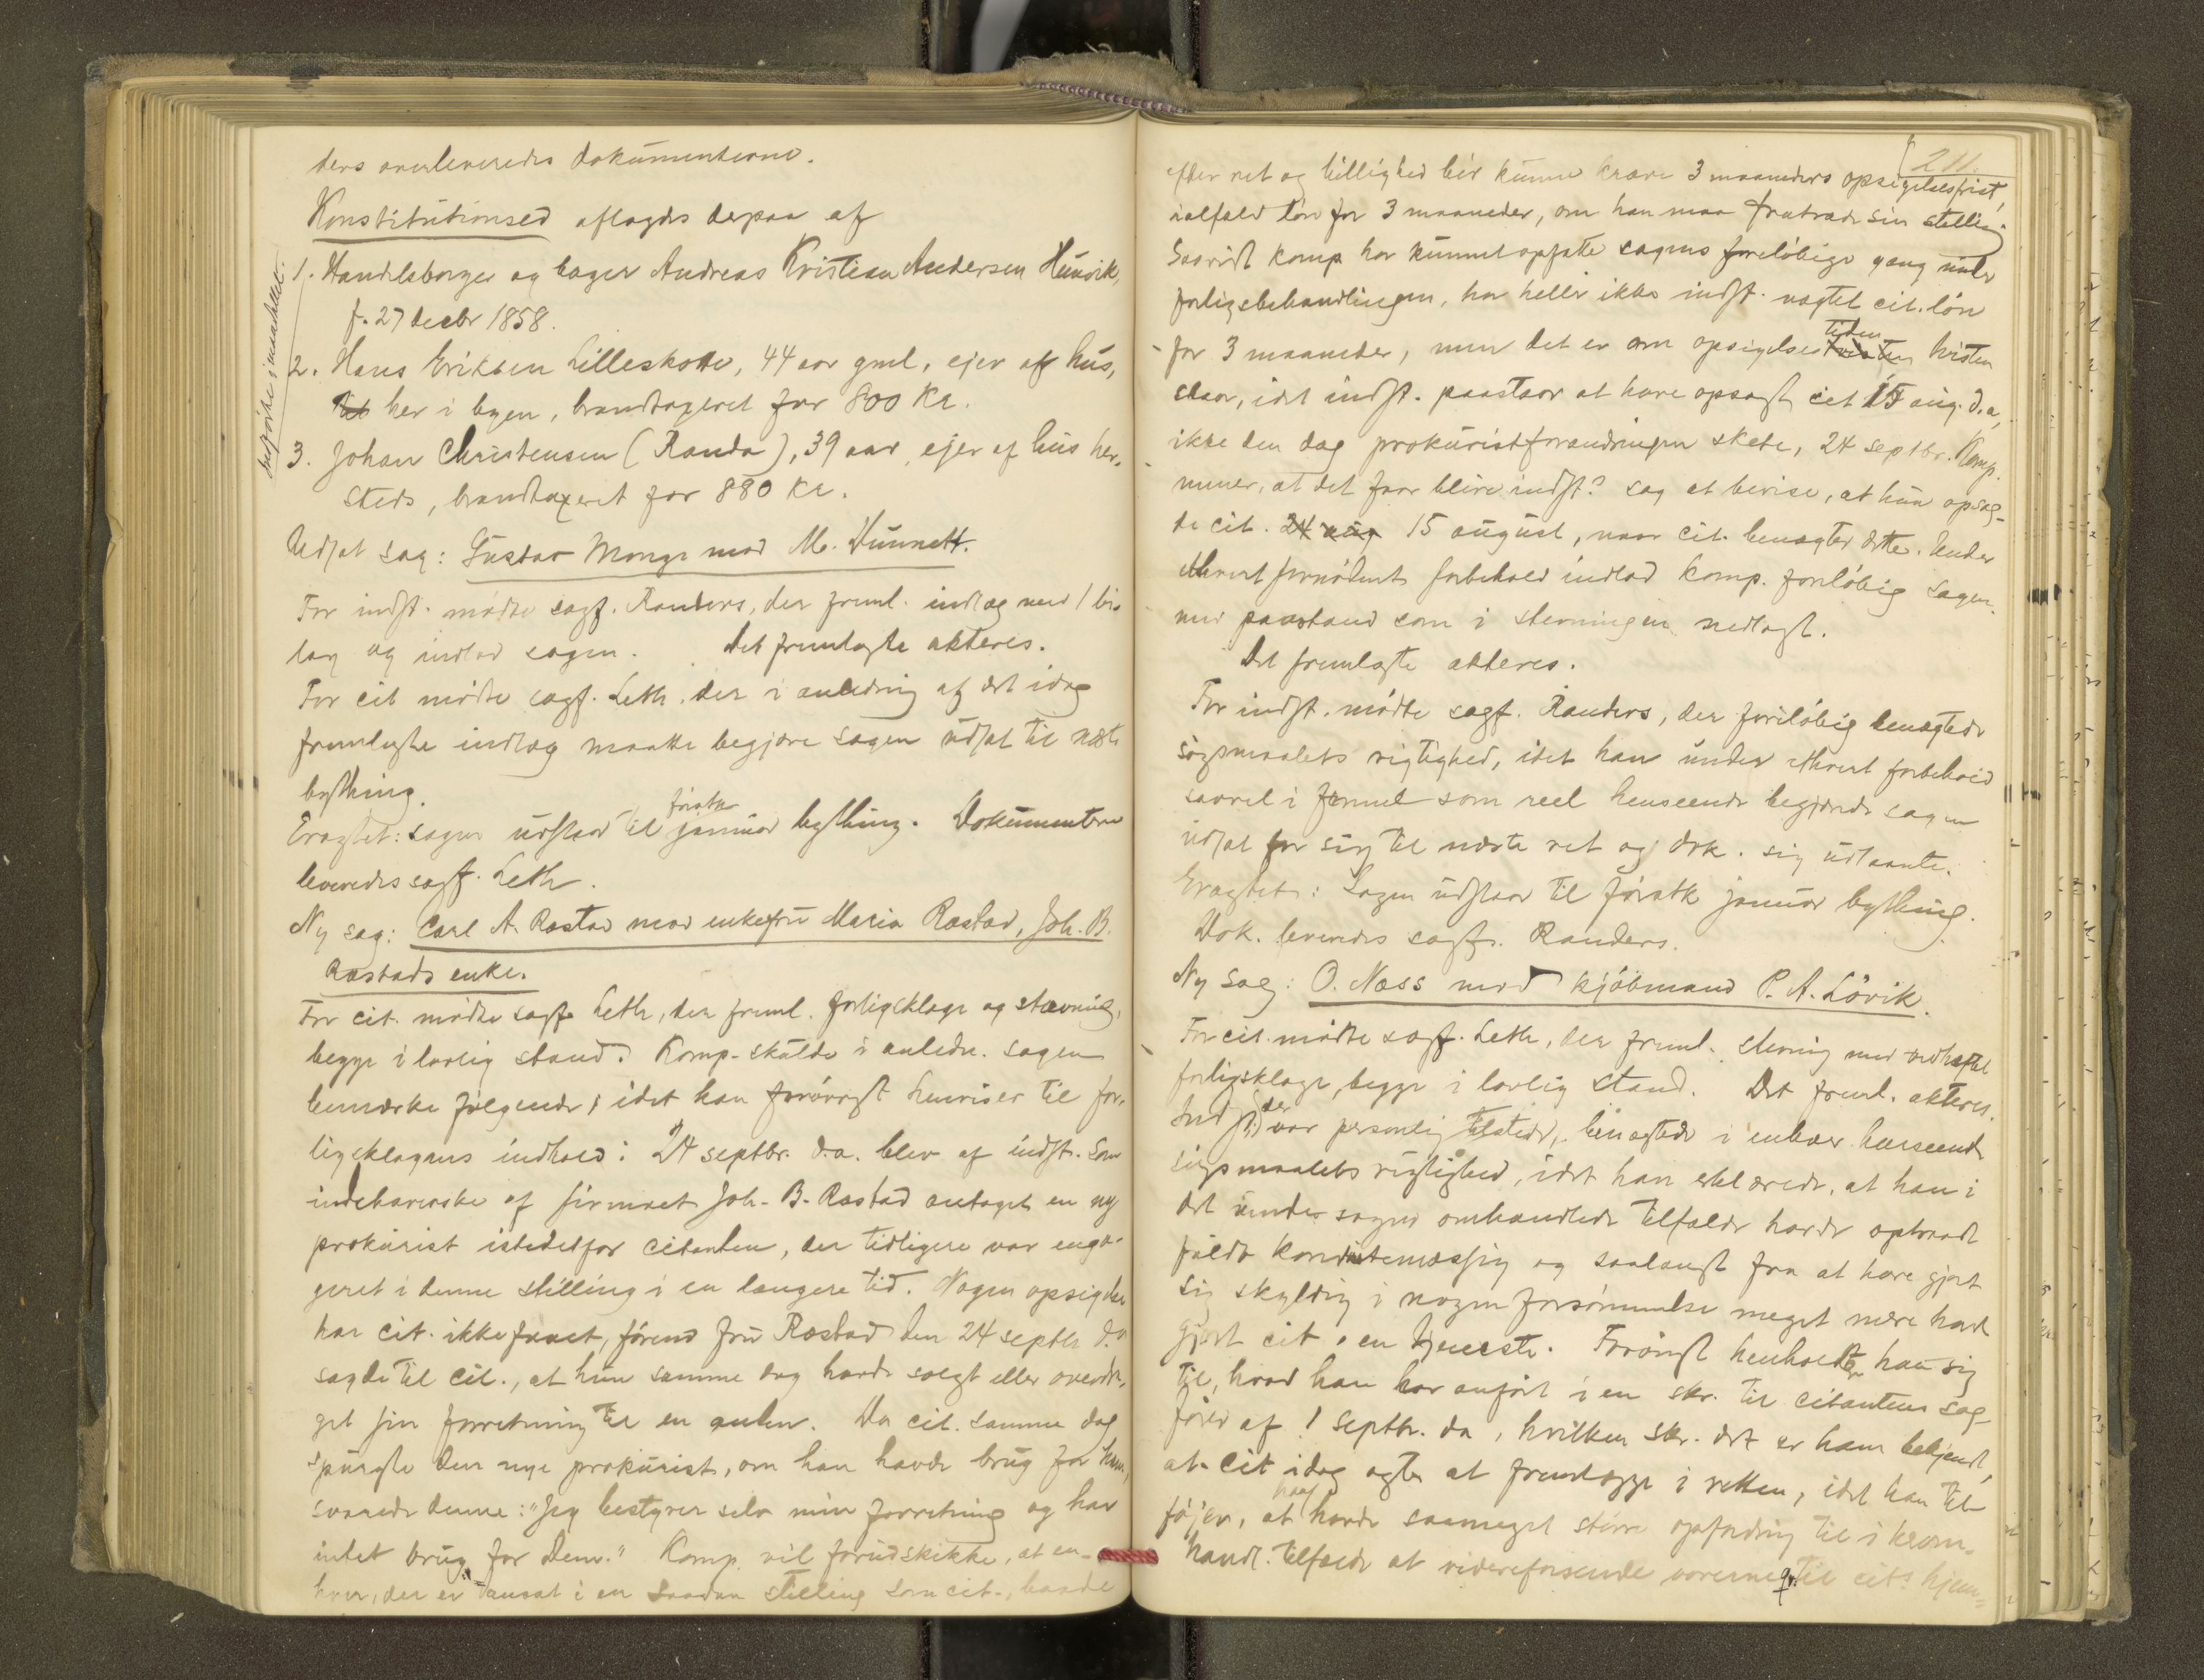 ders overleveredes dokumenterne.
Konstitutionsed aflagdes derpaa af
1. Handelsborger og bager Andreas Kristian Andersen Hunvik,
f. 27 decbr 1858.
2. Hans Eriksen Lilleskotte, 44 aar gml, ejer af hus,
her i byen, brandtaxeret for 800 Kr.
3. Johan Christensen (Randa), 39 aar, ejer af hus her-
steds, brandtaxeret for 880 Kr.
Udsat sag: Gustav Monge mod M. Dunnett.
For indst. mødte sagf. Randers, der freml. indlæg med 1 bi-
lag og indlod sagen. Det fremlagte akteres.
For cit mødte sagf. Leth, der i anledning af det idag
fremlagte indlæg maatte begjære sagen udsat til næste
bything.
Eragtet: sagen udstaar til første januar bything. Dokumenterne
leveredes sagf. Leth.
Ny sag: Carl A. Rastad mod enkefru Maria Rastad, Joh. B.
Rastads enke.
For cit. mødte sagf. Leth, der freml. forligsklage og stævning,
begge i lovlig stand. Komp. skulde i anledn. sagen
bemærke følgende, idet han forøvrigt henviser til for-
ligsklagens indhold: 24 septbr. d.a. blev af indst. som
indehaverske af firmaet Joh. B. Rastad antaget en ny
prokurist istedetfor citanten, der tidligere var enga-
geret i denne stilling i en længere tid. Nogen opsigelse
har cit. ikke faaet, førend fru Rastad den 24 septbr d.a.
sagde til cit., at hun samme dag havde solgt eller overdra-
get sin forretning til en anden. Da cit. samme dag
spurgte den nye prokurist, om han havde brug for ham,
svarede denne: "Jeg bestyrer selv min forretning og har
intet brug for Dem." Komp. vil forudskikke, at en-
hver, der er ansat i en saadan stilling som cit., baade
211.
efter ret og billighed bør kunne kræve 3 maaneders opsigelsesfrist,
ialfald løn for 3 maaneder, om han maa fratræde sin stilling
Saavidt komp har kunnet opfatte sagens foreløbige gang under
forligsbehandlingen, har heller ikke indst. nægtet cit. løn
for 3 maaneder, men det er om opsigelsestiden tvisten
staar, idet indst. paastaar at have opsagt cit 15 aug. d.a,
ikke den dag prokuristforandringen skete, 24 septbr. Komp.
mener, at det faar blive indst? sag at bevise, at hun opsag-
de cit. 24 aug 15 august, naar cit. benægter dette. Under
ethvert fornødent forbehold indlod komp. foreløbig sagen
med paastand som i stevningen nedlagt.
Det fremlagte akteres.
For indst. mødte sagf. Randers, der foreløbig benægtede
søgsmaalets rigtighed, idet han under ethvert forbehold
saavel i formel som reel henseende begjærede sagen
udsat for sig til næste ret og dok. sig udlaante.
Eragtet: Sagen udstaar til første januar bything.
Dok. leveredes sagf. Randers.
Ny sag: O. Næss mod kjøbmand P. A. Lövik.
For cit. mødte sagf. Leth, der freml. stevning med vedhæftet
forligsklage, begge i lovlig stand. Det freml. akteres.
Indst., der var personlig tilstede, benægtede i enhver henseende
søgsmaalets rigtighed, idet han erklærede, at han i
det under sagen omhandlede tilfælde havde optraadt
fuldt kondutemæssig og saalangt fra at have gjort
sig skyldig i nogen forsømmelse meget mere havde
gjort cit. en tjeneste. Forøvrigt henholdte han sig
til, hvad han har anført i en skr. til citantens sag-
fører af 1 septbr. da, hvilken skr. det er ham bekjendt,
at cit idag agter at fremlægge i retten, idet han til
føjer, at havde saameget større opfordring til i heromi-
handl. tilfælde at videreforsende varerne til cits hjem-